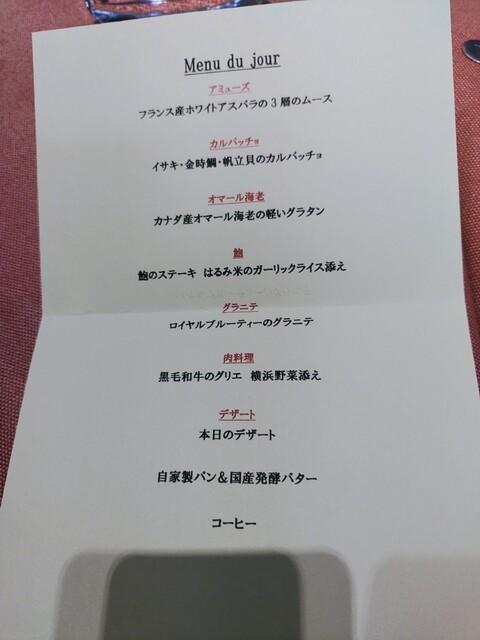 Menu du jour
アミューズ
フランス産ホワイトアスパラの3層のムース
カルパッチョ
イサキ・金時鯛・帆立貝のカルパッチョ
オマール海老
カナダ産オマール海老の軽いグラタン
鮑
鮑のステーキ はるみ米のガーリックライス添え
グラニテ
ロイヤルブルーティーのグラニテ
肉料理
黒毛和牛のグリエ 横浜野菜添え
デザート
本日のデザート
自家製パン&国産発酵バター
コーヒー